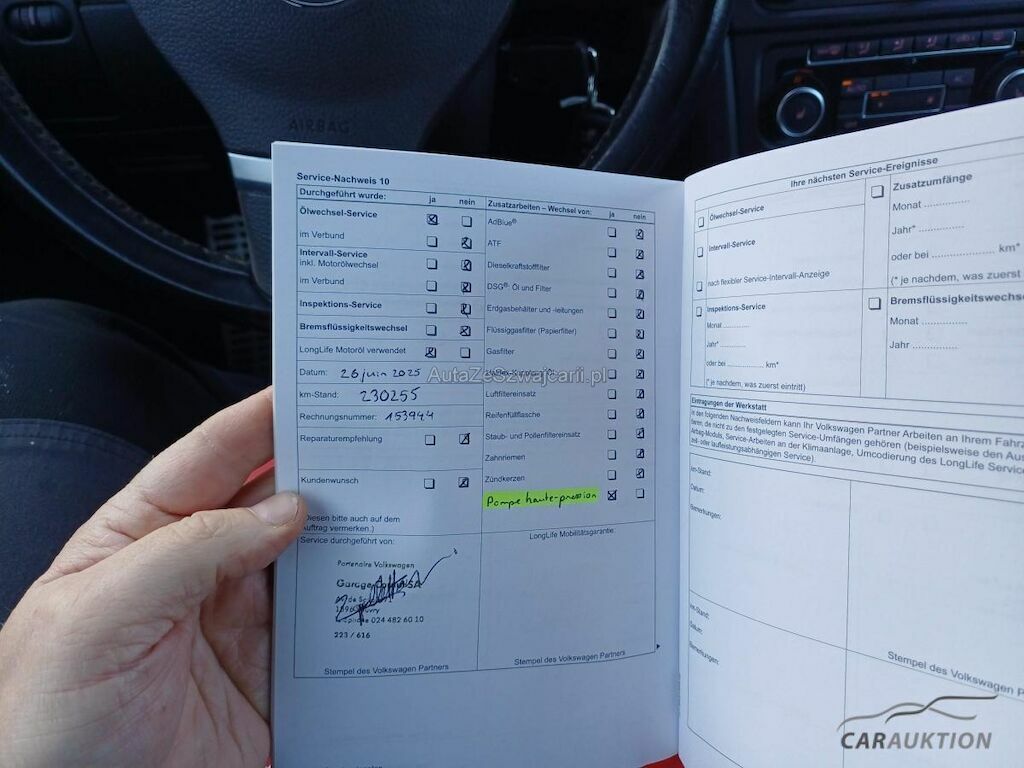 AIRBAG
Service-Nachweis 10
Durchgeführt wurde: ja nein
Ölwechsel-Service
im Verbund
Intervall-Service
inkl. Motorölwechsel
im Verbund
Inspektions-Service
Bremsflüssigkeitswechsel
LongLife Motoröl verwendet
Datum: 26 juin 2025
km-Stand: 230255
Rechnungsnummer: 153944
Reparaturempfehlung
Kundenwunsch
(Diesen bitte auch auf dem
Auftrag vermerken.)
Zusatzarbeiten – Wechsel von: ja nein
AdBlue®
ATF
Dieselkraftstofffilter
DSG®: Öl und Filter
Erdgasbehälter und -leitungen
Flüssiggasfilter (Papierfilter)
Gasfilter
Luftfiltereinsatz
Reifenfüllflasche
Staub- und Pollenfiltereinsatz
Zahnriemen
Zündkerzen
Pompe haute-pression
Service durchgeführt von:
Partenaire Volkswagen
Garage
024 482 60 10
223 / 616
Stempel des Volkswagen Partners
LongLife Mobilitätsgarantie
Stempel des Volkswagen Partners
Ihre nächsten Service-Ereignisse
Ölwechsel-Service
Intervall-Service
nach flexibler Service-Intervall-Anzeige
Inspektions-Service
Monat ..............
Jahr* ..............
oder bei .................... km*
(* je nachdem, was zuerst eintritt)
Zusatzumfänge
Monat ..............
Jahr* ..............
oder bei .................... km*
(* je nachdem, was zuerst
Bremsflüssigkeitswechse
Monat ..............
Jahr ..............
Eintragungen der Werkstatt
In den folgenden Nachweisfeldern kann Ihr Volkswagen Partner Arbeiten an Ihrem Fahrz
ren, die nicht zu den festgelegten Service-Umfängen gehören (beispielsweise den Aus
Airbag-Moduls, Service-Arbeiten an der Klimaanlage, Umcodierung des LongLife Service
zeit- oder laufleistungsabhängigen Service).
km-Stand:
Datum:
Bemerkungen:
km-Stand:
Datum:
Bemerkungen:
Stempel des Volkswagen P
AutaZeSzwajcarii.pl
CARAUKTION